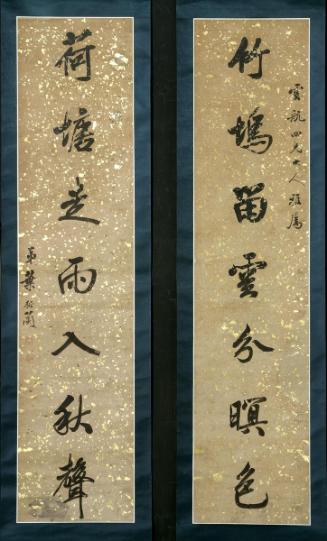 雲航四兄大人雅属
竹塢留雲分暝色
荷塘走雨入秋聲
弟葉衍蘭